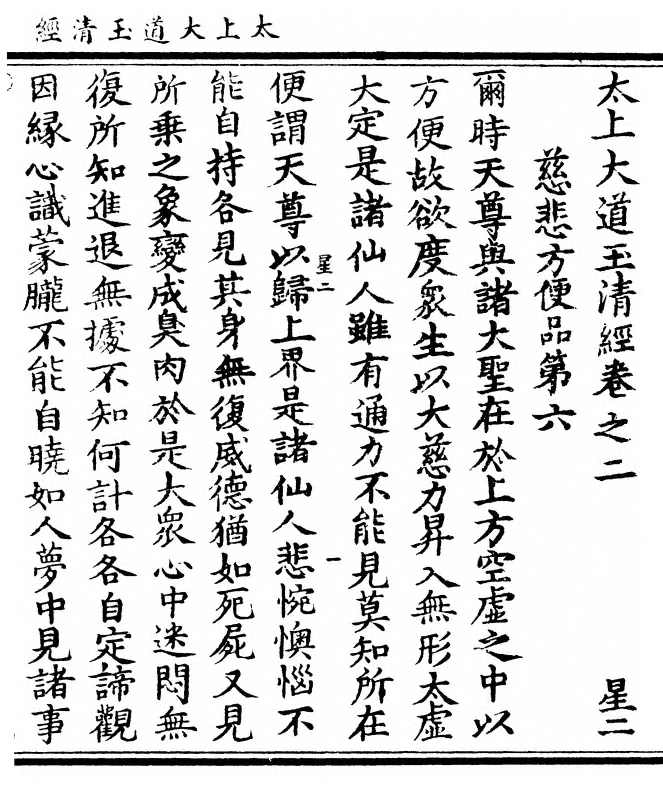 太上大道玉清經
太上大道玉清經卷之二　星二
慈悲方便品第六
爾時天尊與諸大聖在於上方空虛之中以
方便故欲度衆生以大慈力昇入無形太虛
大定是諸仙人雖有通力不能見莫知所在
星二　一
便謂天尊以歸上界是諸仙人悲惋懊惱不
能自持各見其身無復威德猶如死屍又見
所乘之象變成臭肉於是大衆心中迷悶無
復所知進退無據不知何計各各自定諦觀
因緣心識蒙朧不能自曉如人夢中見諸事